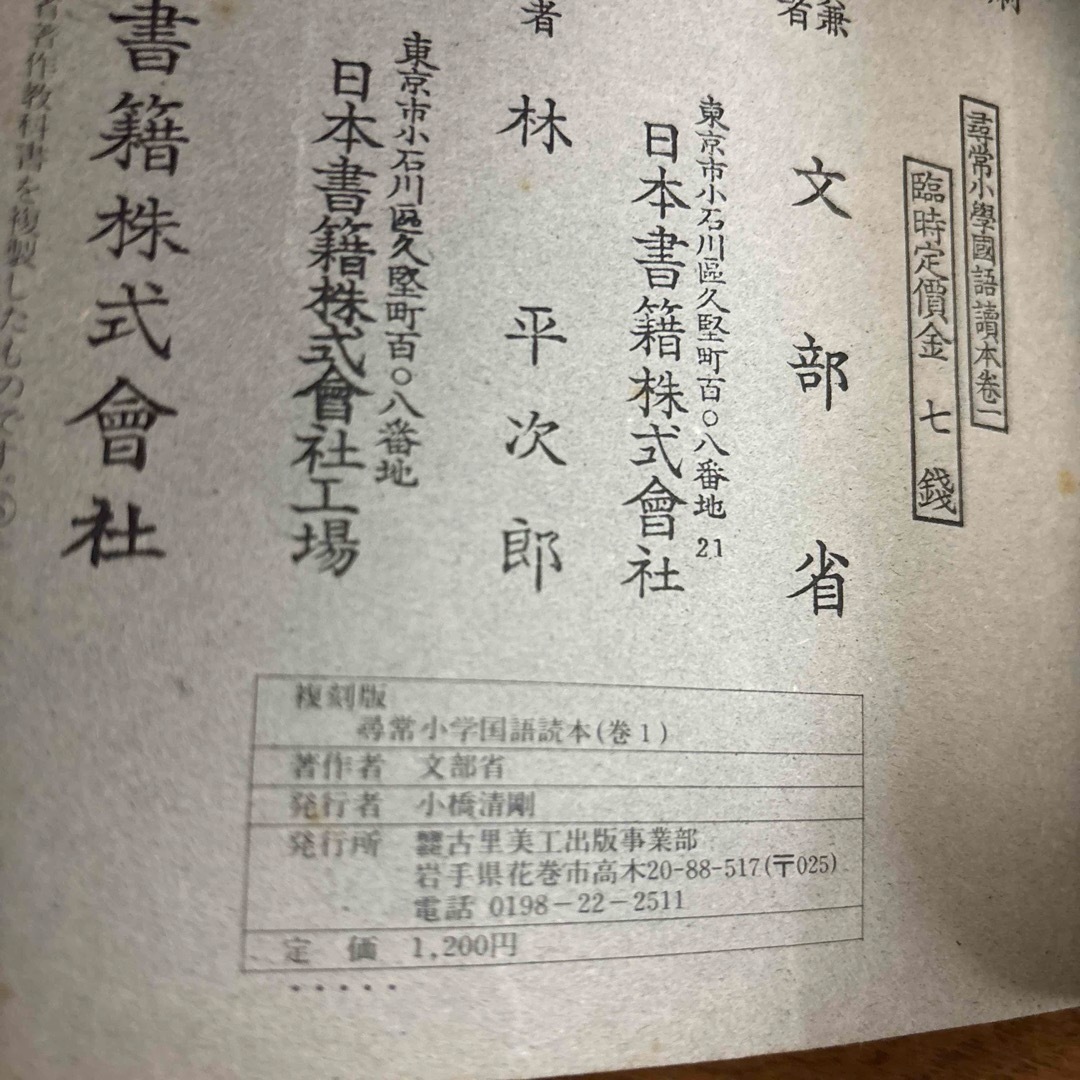 刷
尋常小學國語讀本卷一
臨時定價金 七錢
兼
者
文部省
東京市小石川區久堅町百〇八番地 21
日本書籍株式會社
者 林平次郎
東京市小石川區久堅町百〇八番地
日本書籍株式會社工場
書籍株式會社
省著作教科書を複製したものです。
複刻版
尋常小学国語読本(巻1)
著作者 文部省
発行者 小橋清剛
発行所 古里美工出版事業部
岩手県花巻市高木20-88-517(〒025)
電話 0198-22-2511
定 価 1,200円